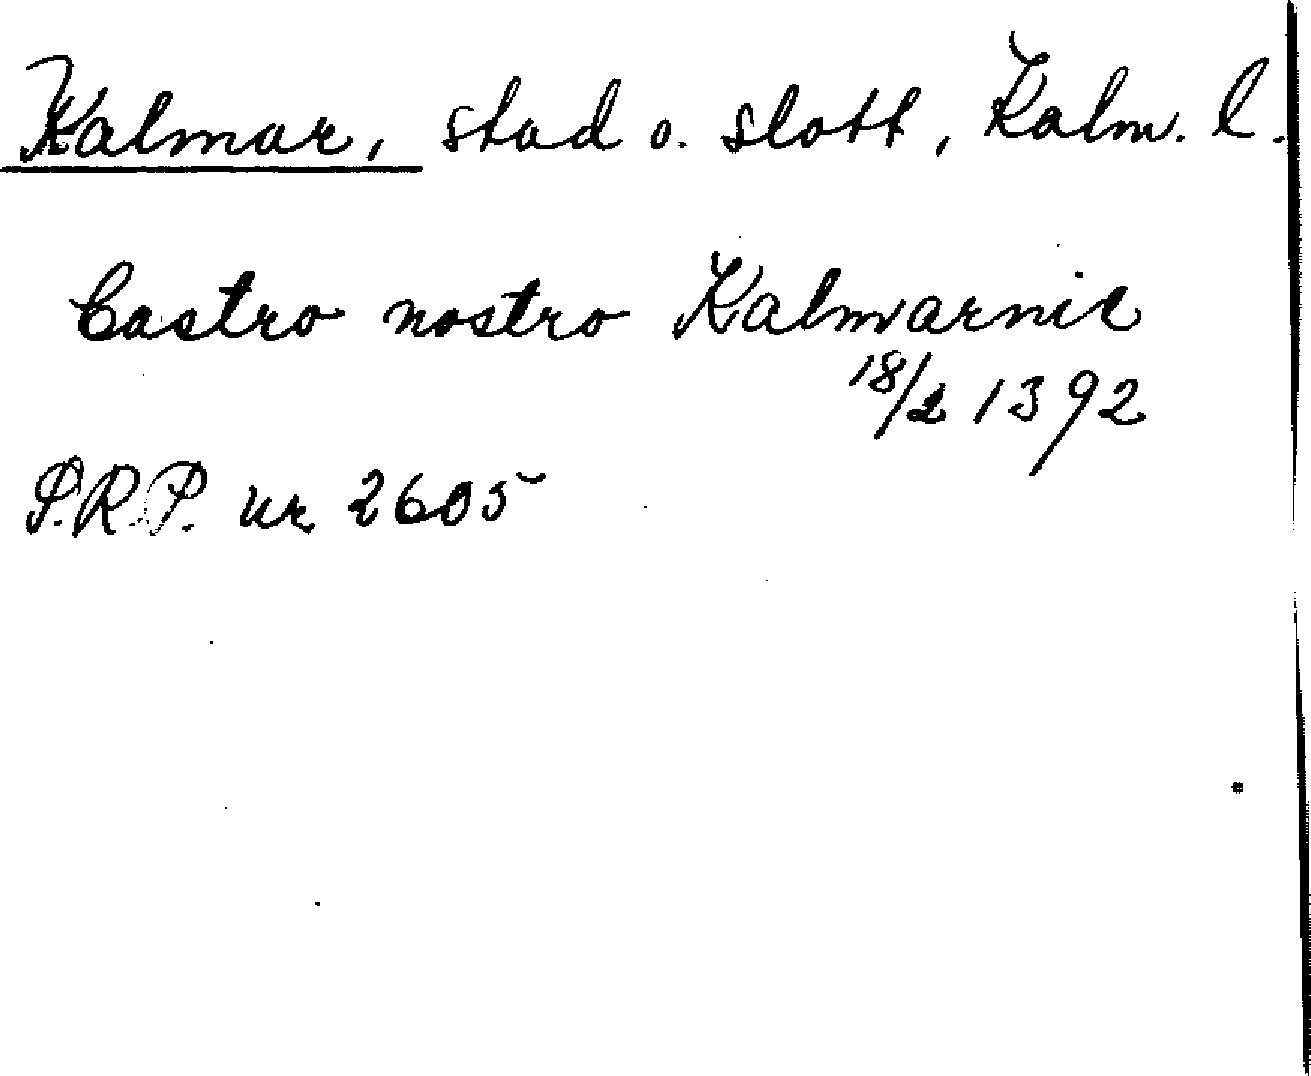 Kalmar, stad o. slott, Kalm. l.
Castro nostro Kalmarnie
18/2 1392
S.R.P. nr 2605